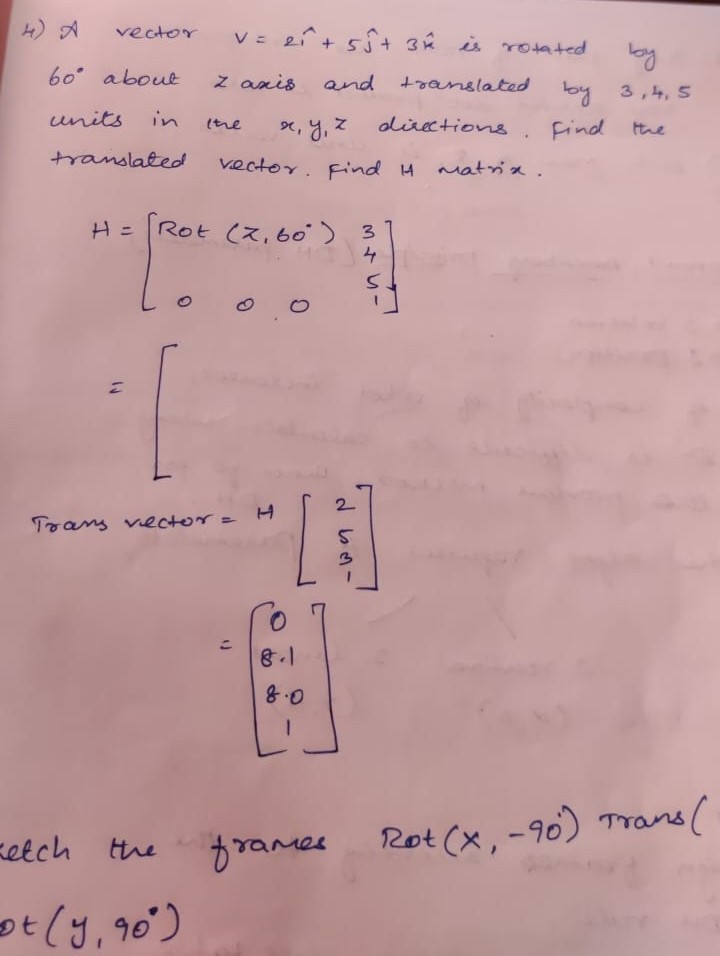 4) A vector V = 2î + 5ĵ + 3k̂ is rotated by
60° about z axis and translated by 3,4,5
units in the x,y,z directions. Find the
translated vector. Find H matrix.
H = [Rot (z,60°) 3
4
5
0 0 0 1]
= [
Trans vector = H [2
5
3
1]
= [0
8.1
8.0
1]
ketch the frames Rot(x,-90°) Trans(
ot(y,90°)